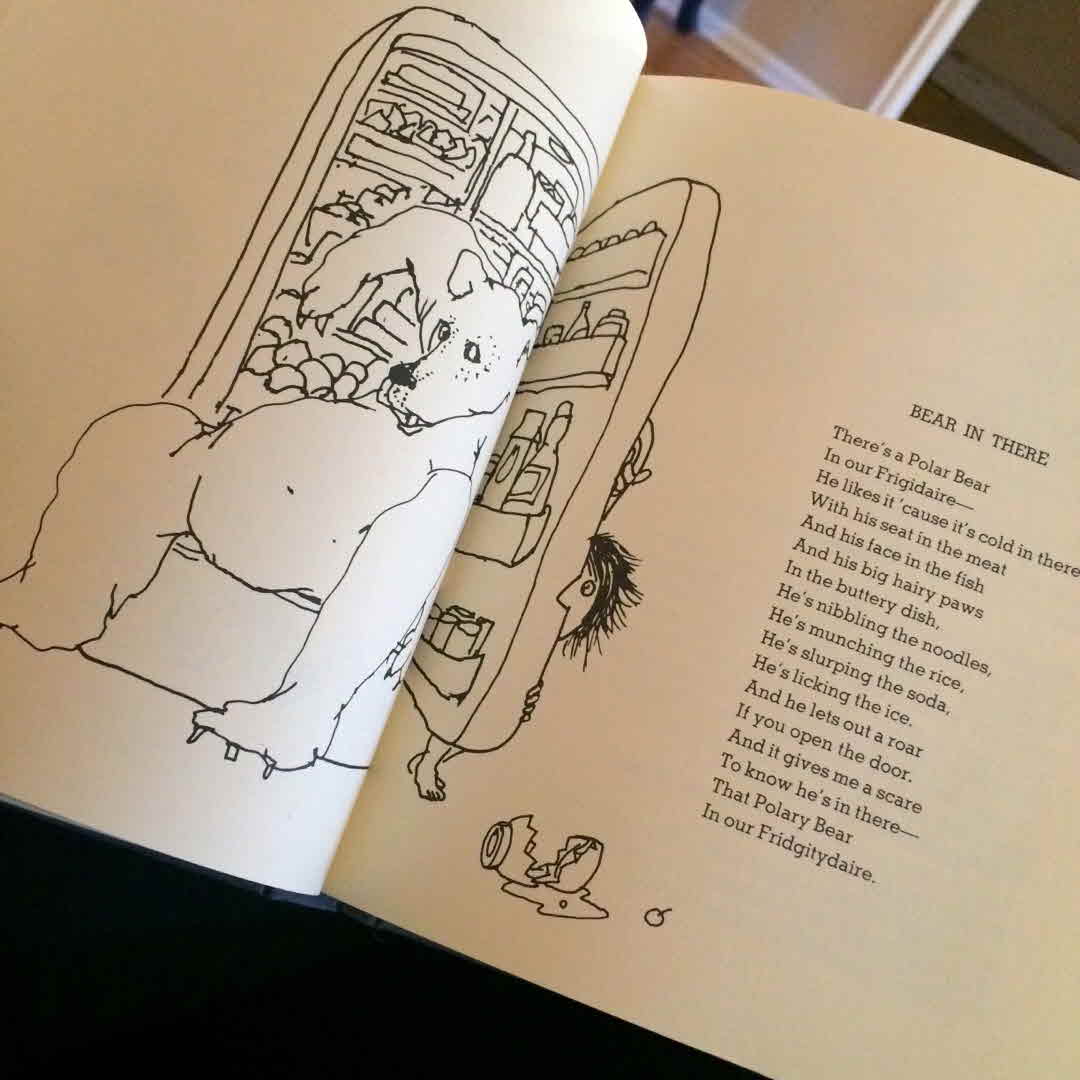 BEAR IN THERE
There's a Polar Bear
In our Frigidaire—
He likes it 'cause it's cold in there
With his seat in the meat
And his face in the fish
And his big hairy paws
In the buttery dish,
He's nibbling the noodles,
He's munching the rice,
He's slurping the soda,
He's licking the ice.
And he lets out a roar
If you open the door.
And it gives me a scare
To know he's in there—
That Polary Bear
In our Fridgitydaire.